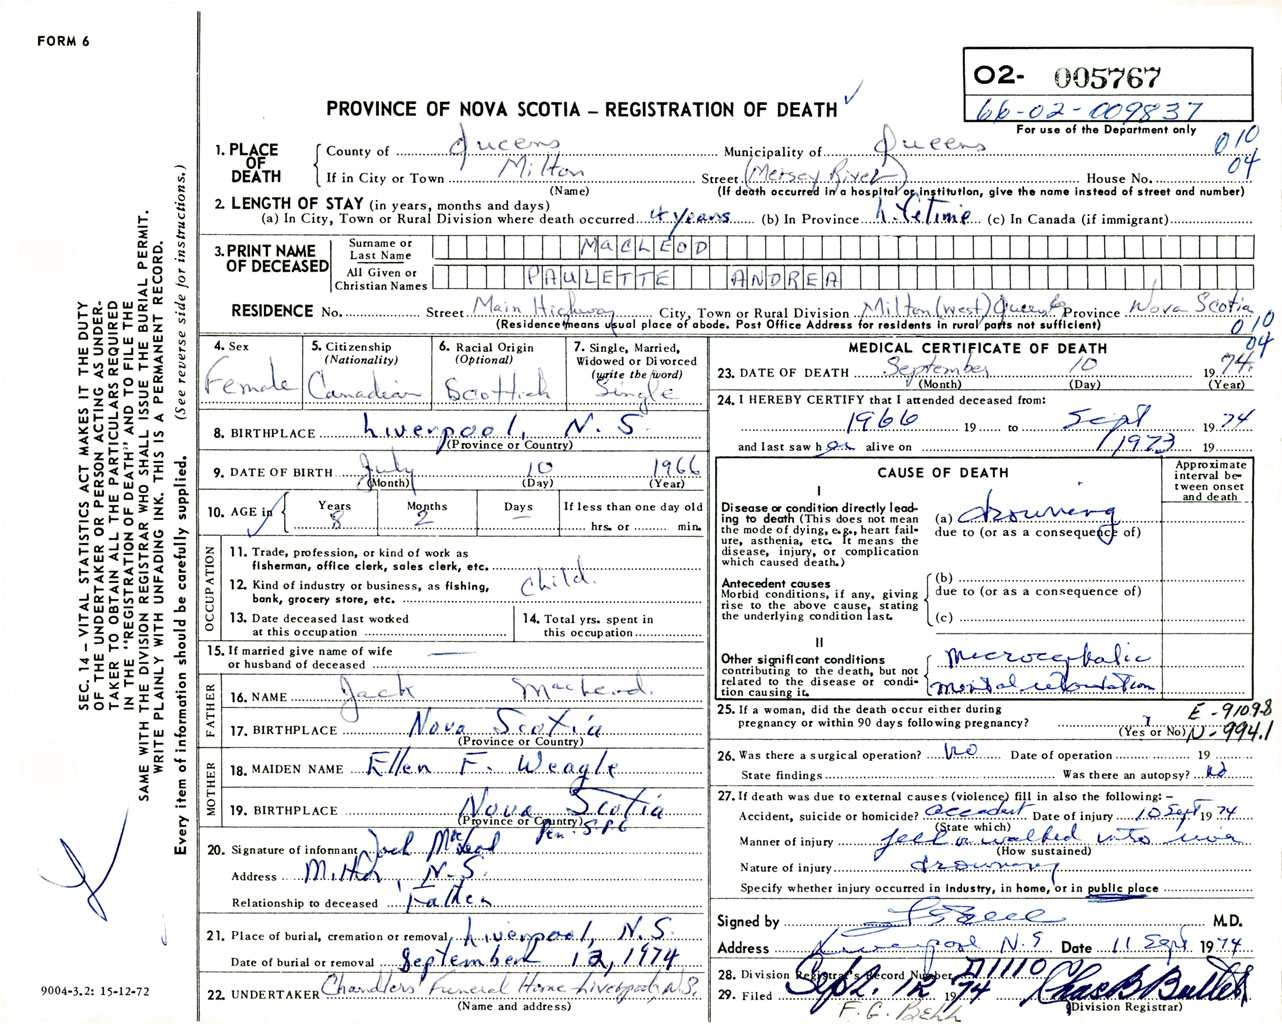 FORM 6
O2- 005767
66-02-009837
For use of the Department only
PROVINCE OF NOVA SCOTIA – REGISTRATION OF DEATH
010
04
1. PLACE OF DEATH
County of Queens Municipality of Queens
If in City or Town Milton Street (Mersey River) House No.
(Name) (If death occurred in a hospital or institution, give the name instead of street and number)
2. LENGTH OF STAY (in years, months and days)
(a) In City, Town or Rural Division where death occurred 4 years (b) In Province Lifetime (c) In Canada (if immigrant)
3. PRINT NAME OF DECEASED
Surname or Last Name MacLEOD
All Given or Christian Names PAULETTE ANDREA
RESIDENCE No. Street Main Highway City, Town or Rural Division Milton (West) Queens Province Nova Scotia
(Residence means usual place of abode. Post Office Address for residents in rural parts not sufficient)
010
04
4. Sex Female
5. Citizenship (Nationality) Canadian
6. Racial Origin (Optional) Scottish
7. Single, Married, Widowed or Divorced (write the word) Single
8. BIRTHPLACE Liverpool, N.S.
(Province or Country)
9. DATE OF BIRTH July 10 1966
(Month) (Day) (Year)
10. AGE in Years 8 Months 2 Days — If less than one day old hrs. or min.
OCCUPATION
11. Trade, profession, or kind of work as fisherman, office clerk, sales clerk, etc.
12. Kind of industry or business, as fishing, bank, grocery store, etc.
Child.
13. Date deceased last worked at this occupation
14. Total yrs. spent in this occupation
15. If married give name of wife or husband of deceased —
FATHER
16. NAME Jack MacLeod.
17. BIRTHPLACE Nova Scotia
(Province or Country)
MOTHER
18. MAIDEN NAME Ellen F. Weagle
19. BIRTHPLACE Nova Scotia
(Province or Country)
20. Signature of informant Jack MacLeod
Address Milton, N.S.
Relationship to deceased Father
21. Place of burial, cremation or removal Liverpool, N.S.
Date of burial or removal September 12, 1974
22. UNDERTAKER Chandlers' Funeral Home - Liverpool, N.S.
(Name and address)
MEDICAL CERTIFICATE OF DEATH
23. DATE OF DEATH September 10 1974.
(Month) (Day) (Year)
24. I HEREBY CERTIFY that I attended deceased from:
1966 19 to Sept 1974
and last saw her alive on 1973 19
CAUSE OF DEATH
Approximate interval between onset and death
I
Disease or condition directly leading to death (This does not mean the mode of dying, e.g., heart failure, asthenia, etc. It means the disease, injury, or complication which caused death.)
(a) drowning
due to (or as a consequence of)
Antecedent causes
Morbid conditions, if any, giving rise to the above cause, stating the underlying condition last.
(b)
due to (or as a consequence of)
(c)
II
Other significant conditions contributing to the death, but not related to the disease or condition causing it.
Microcephalic
mental retardation
25. If a woman, did the death occur either during pregnancy or within 90 days following pregnancy?
(Yes or No)
E-9109.8
N-994.1
26. Was there a surgical operation? No Date of operation 19
State findings Was there an autopsy? No
27. If death was due to external causes (violence) fill in also the following: –
Accident, suicide or homicide? accident Date of injury 10 Sept 1974
(State which)
Manner of injury fell or walked into river
(How sustained)
Nature of injury drowning
Specify whether injury occurred in industry, in home, or in public place
Signed by M.D.
Address Liverpool N.S Date 11 Sept 1974
28. Division Registrar's Record Number
29. Filed Sept. 12 1974
(Division Registrar)
SEC. 14 – VITAL STATISTICS ACT MAKES IT THE DUTY
OF THE UNDERTAKER OR PERSON ACTING AS UNDER-
TAKER TO OBTAIN ALL THE PARTICULARS REQUIRED
IN THE "REGISTRATION OF DEATH" AND TO FILE THE
SAME WITH THE DIVISION REGISTRAR WHO SHALL ISSUE THE BURIAL PERMIT.
WRITE PLAINLY WITH UNFADING INK. THIS IS A PERMANENT RECORD.
Every item of information should be carefully supplied. (See reverse side for instructions.)
9004-3.2: 15-12-72